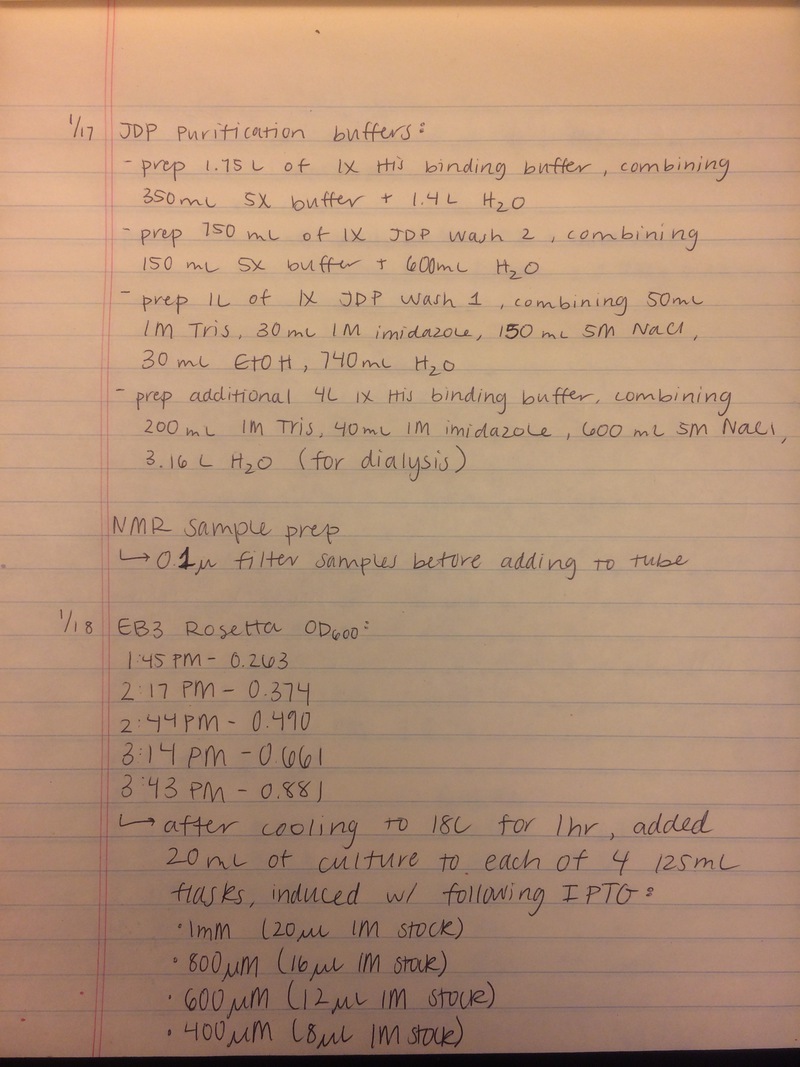 1/17 JDP Purification buffers:
- prep 1.75 L of 1X His binding buffer, combining
350 mL 5X buffer + 1.4 L H2O
- prep 750 mL of 1X JDP Wash 2, combining
150 mL 5X buffer + 600mL H2O
- prep 1L of 1X JDP Wash 1, combining 50mL
1M Tris, 30 mL 1M imidazole, 150 mL 5M NaCl,
30 mL EtOH, 740 mL H2O
- prep additional 4L 1X His binding buffer, combining
200 mL 1M Tris, 40mL 1M imidazole, 600 mL 5M NaCl,
3.16 L H2O (for dialysis)
NMR sample prep
↳ 0.1μ filter samples before adding to tube
1/18 EB3 Rosetta OD600:
1:45 PM - 0.263
2:17 PM - 0.374
2:44 PM - 0.490
3:14 PM - 0.661
3:43 PM - 0.881
↳ after cooling to 18C for 1hr, added
20 mL of culture to each of 4 125mL
flasks, induced w/ following IPTG:
· 1mM (20μL 1M stock)
· 800μM (16μL 1M stock)
· 600μM (12μL 1M stock)
· 400μM (8μL 1M stock)